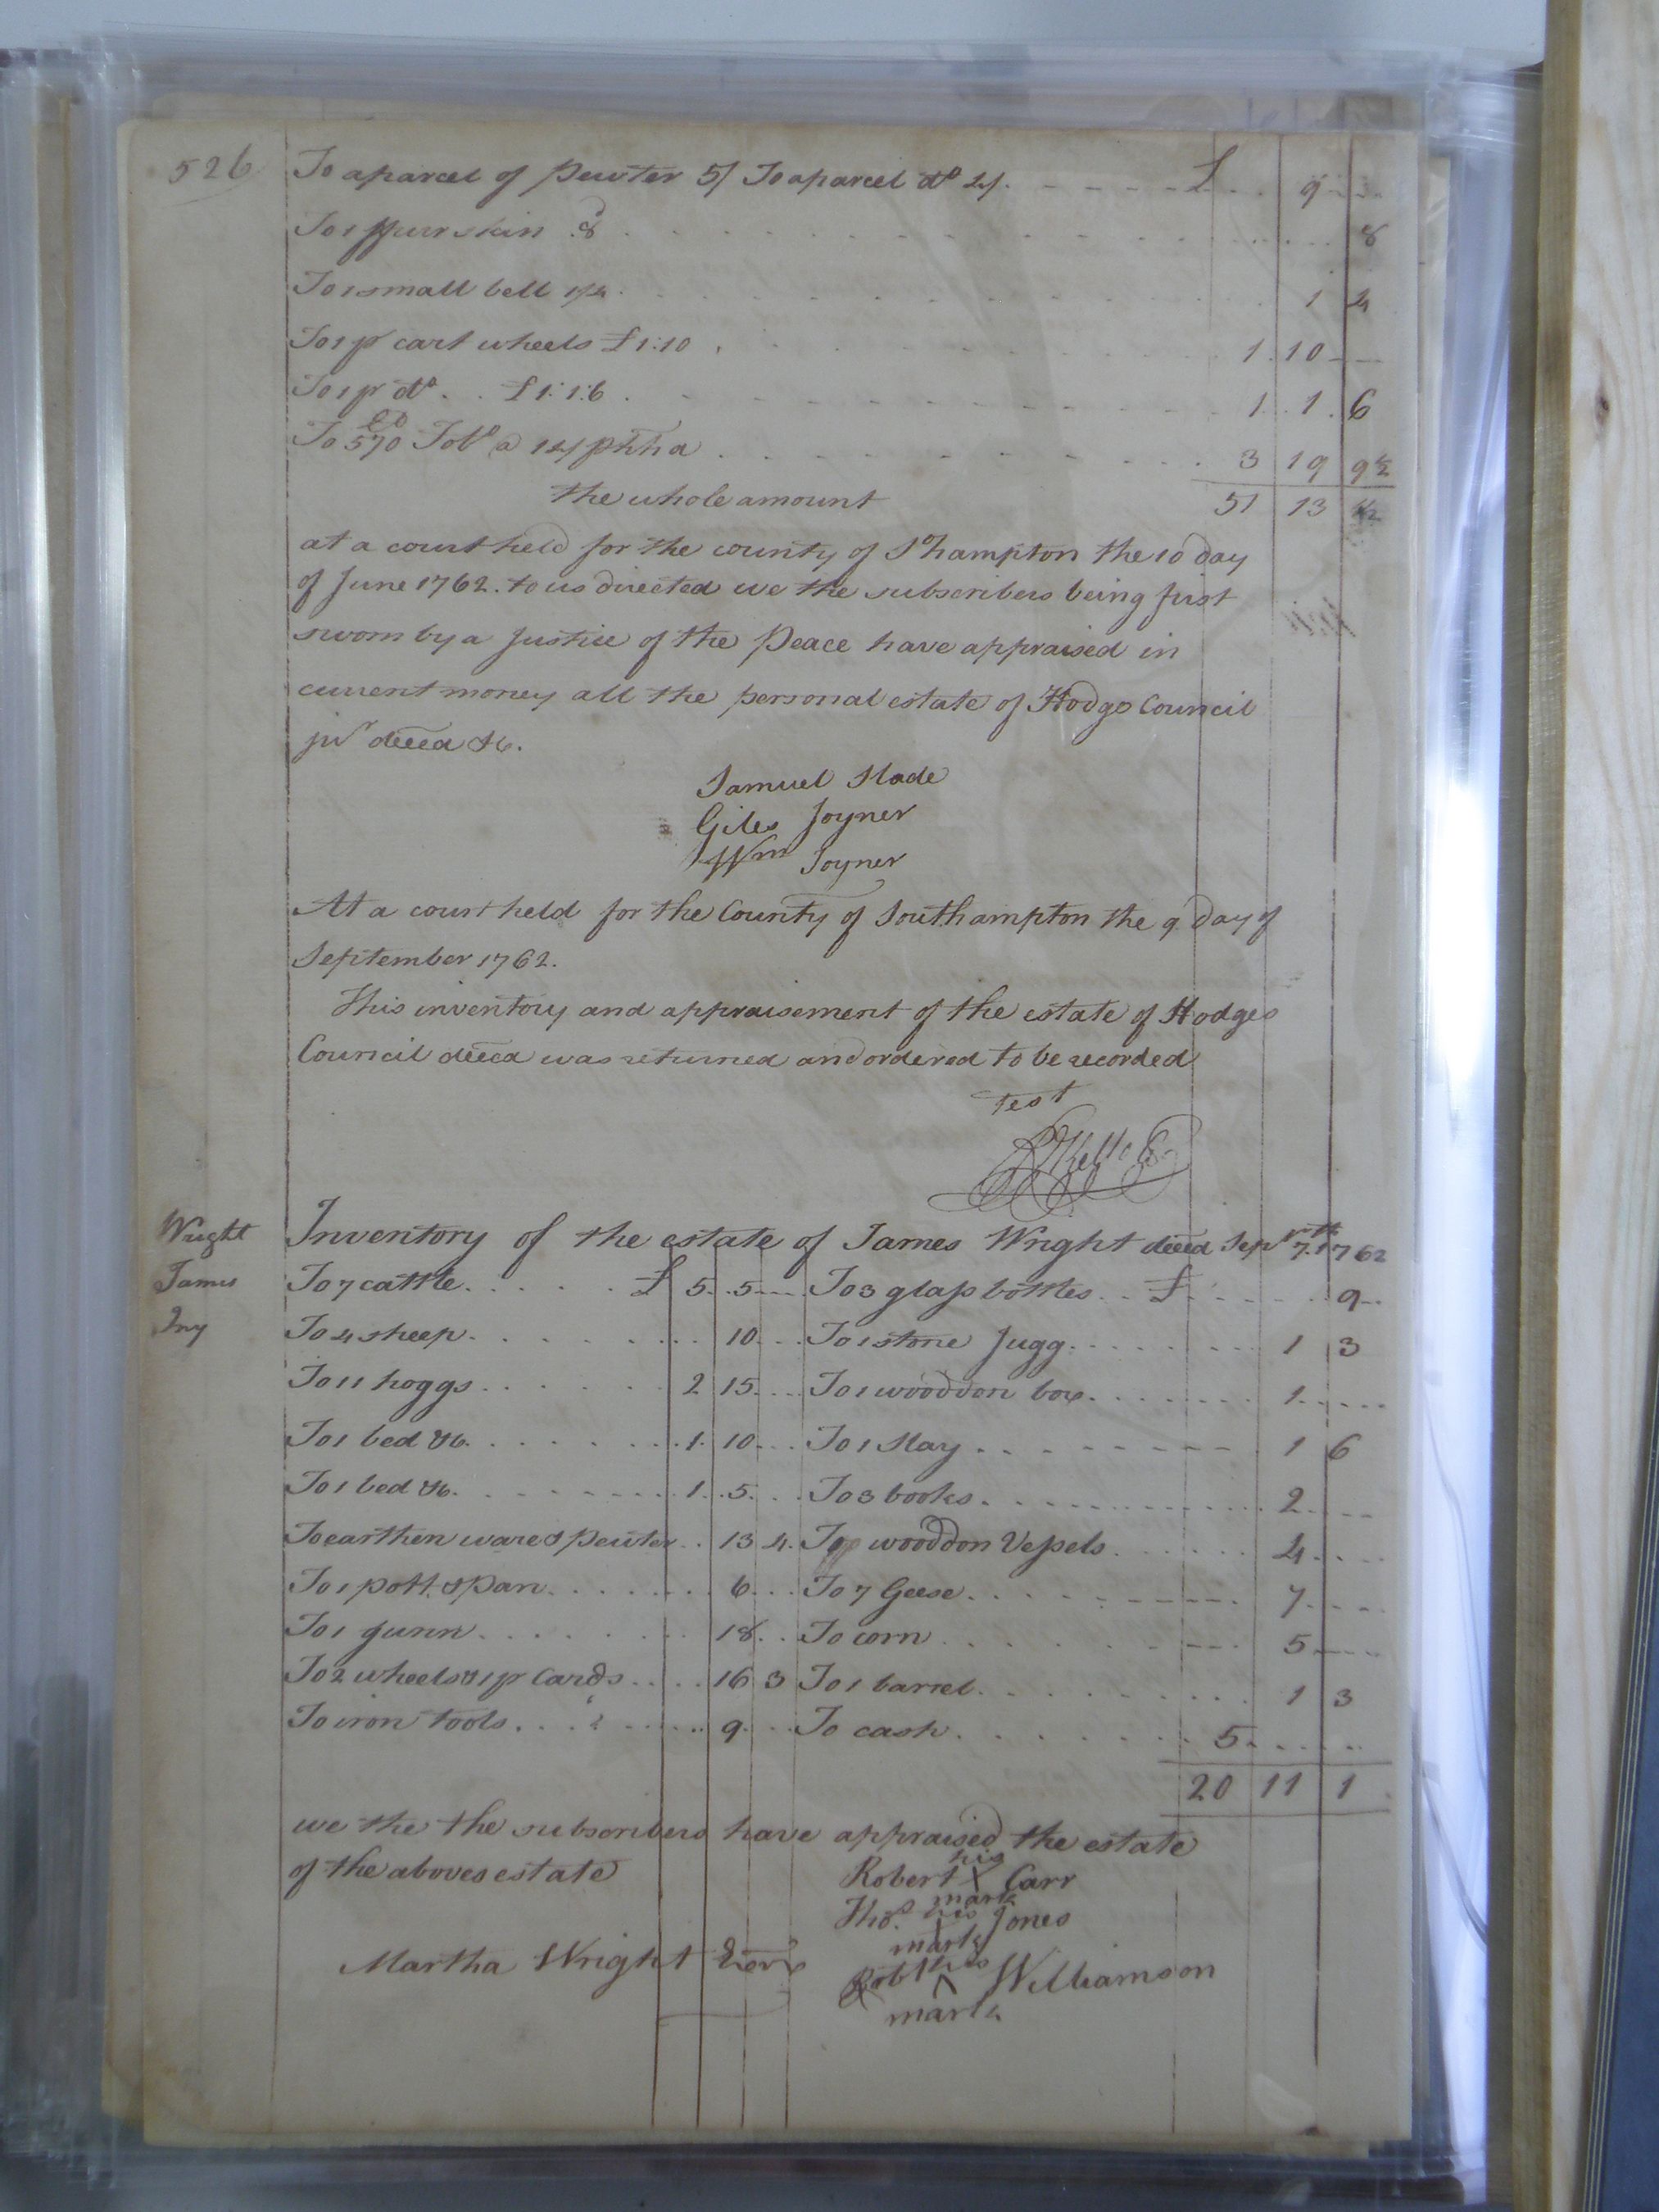 526
To a parcel of Pewter 5/ To a parcel do 4/. £ 9
To 1 furr skin 8d 8
To 1 small bell 1/4 1 4
To 1 pr cart wheels £1:10 1 10
To 1 pr do £1:1:6 1 1 6
To 570 Tobo @ 14/ p hhd 3 19 9½
the whole amount 51 13 ½
at a court held for the county of So hampton the 10 day
of June 1762. to us directed we the subscribers being first
sworn by a Justice of the Peace have appraised in
current money all the personal estate of Hodges Council
junr deced &c.
Samuel Slade
Giles Joyner
Wm Joyner
At a court held for the County of Southampton the 9 day of
September 1762.
This inventory and appraisement of the estate of Hodges
Council deced was returned and ordered to be recorded
Test
Wright
James
Iny
Inventory of the estate of James Wright deced Sepr 7th 1762
To 7 cattle £ 5 5 To 3 glass bottles £ 9
To 4 sheep 10 To 1 stone Jugg 1 3
To 11 hoggs 2 15 To 1 wooddon box 1
To 1 bed &c. 1 10 To 1 Slay 1 6
To 1 bed &c. 1 5 To 3 books 2
To earthen ware & Pewter 13 4 To wooddon Vessels 4
To 1 pott & Pan 6 To 7 Geese 7
To 1 gunn 18 To corn 5
To 2 wheels & 1 pr Cards 16 3 To 1 barrel 1 3
To iron tools 9 To cash 5
20 11 1
we the the subscribers have appraised the estate
of the aboves estate
Robert his mark Carr
Thos. his mark Jones
Martha Wright Exorx
Robt his mark Williamson